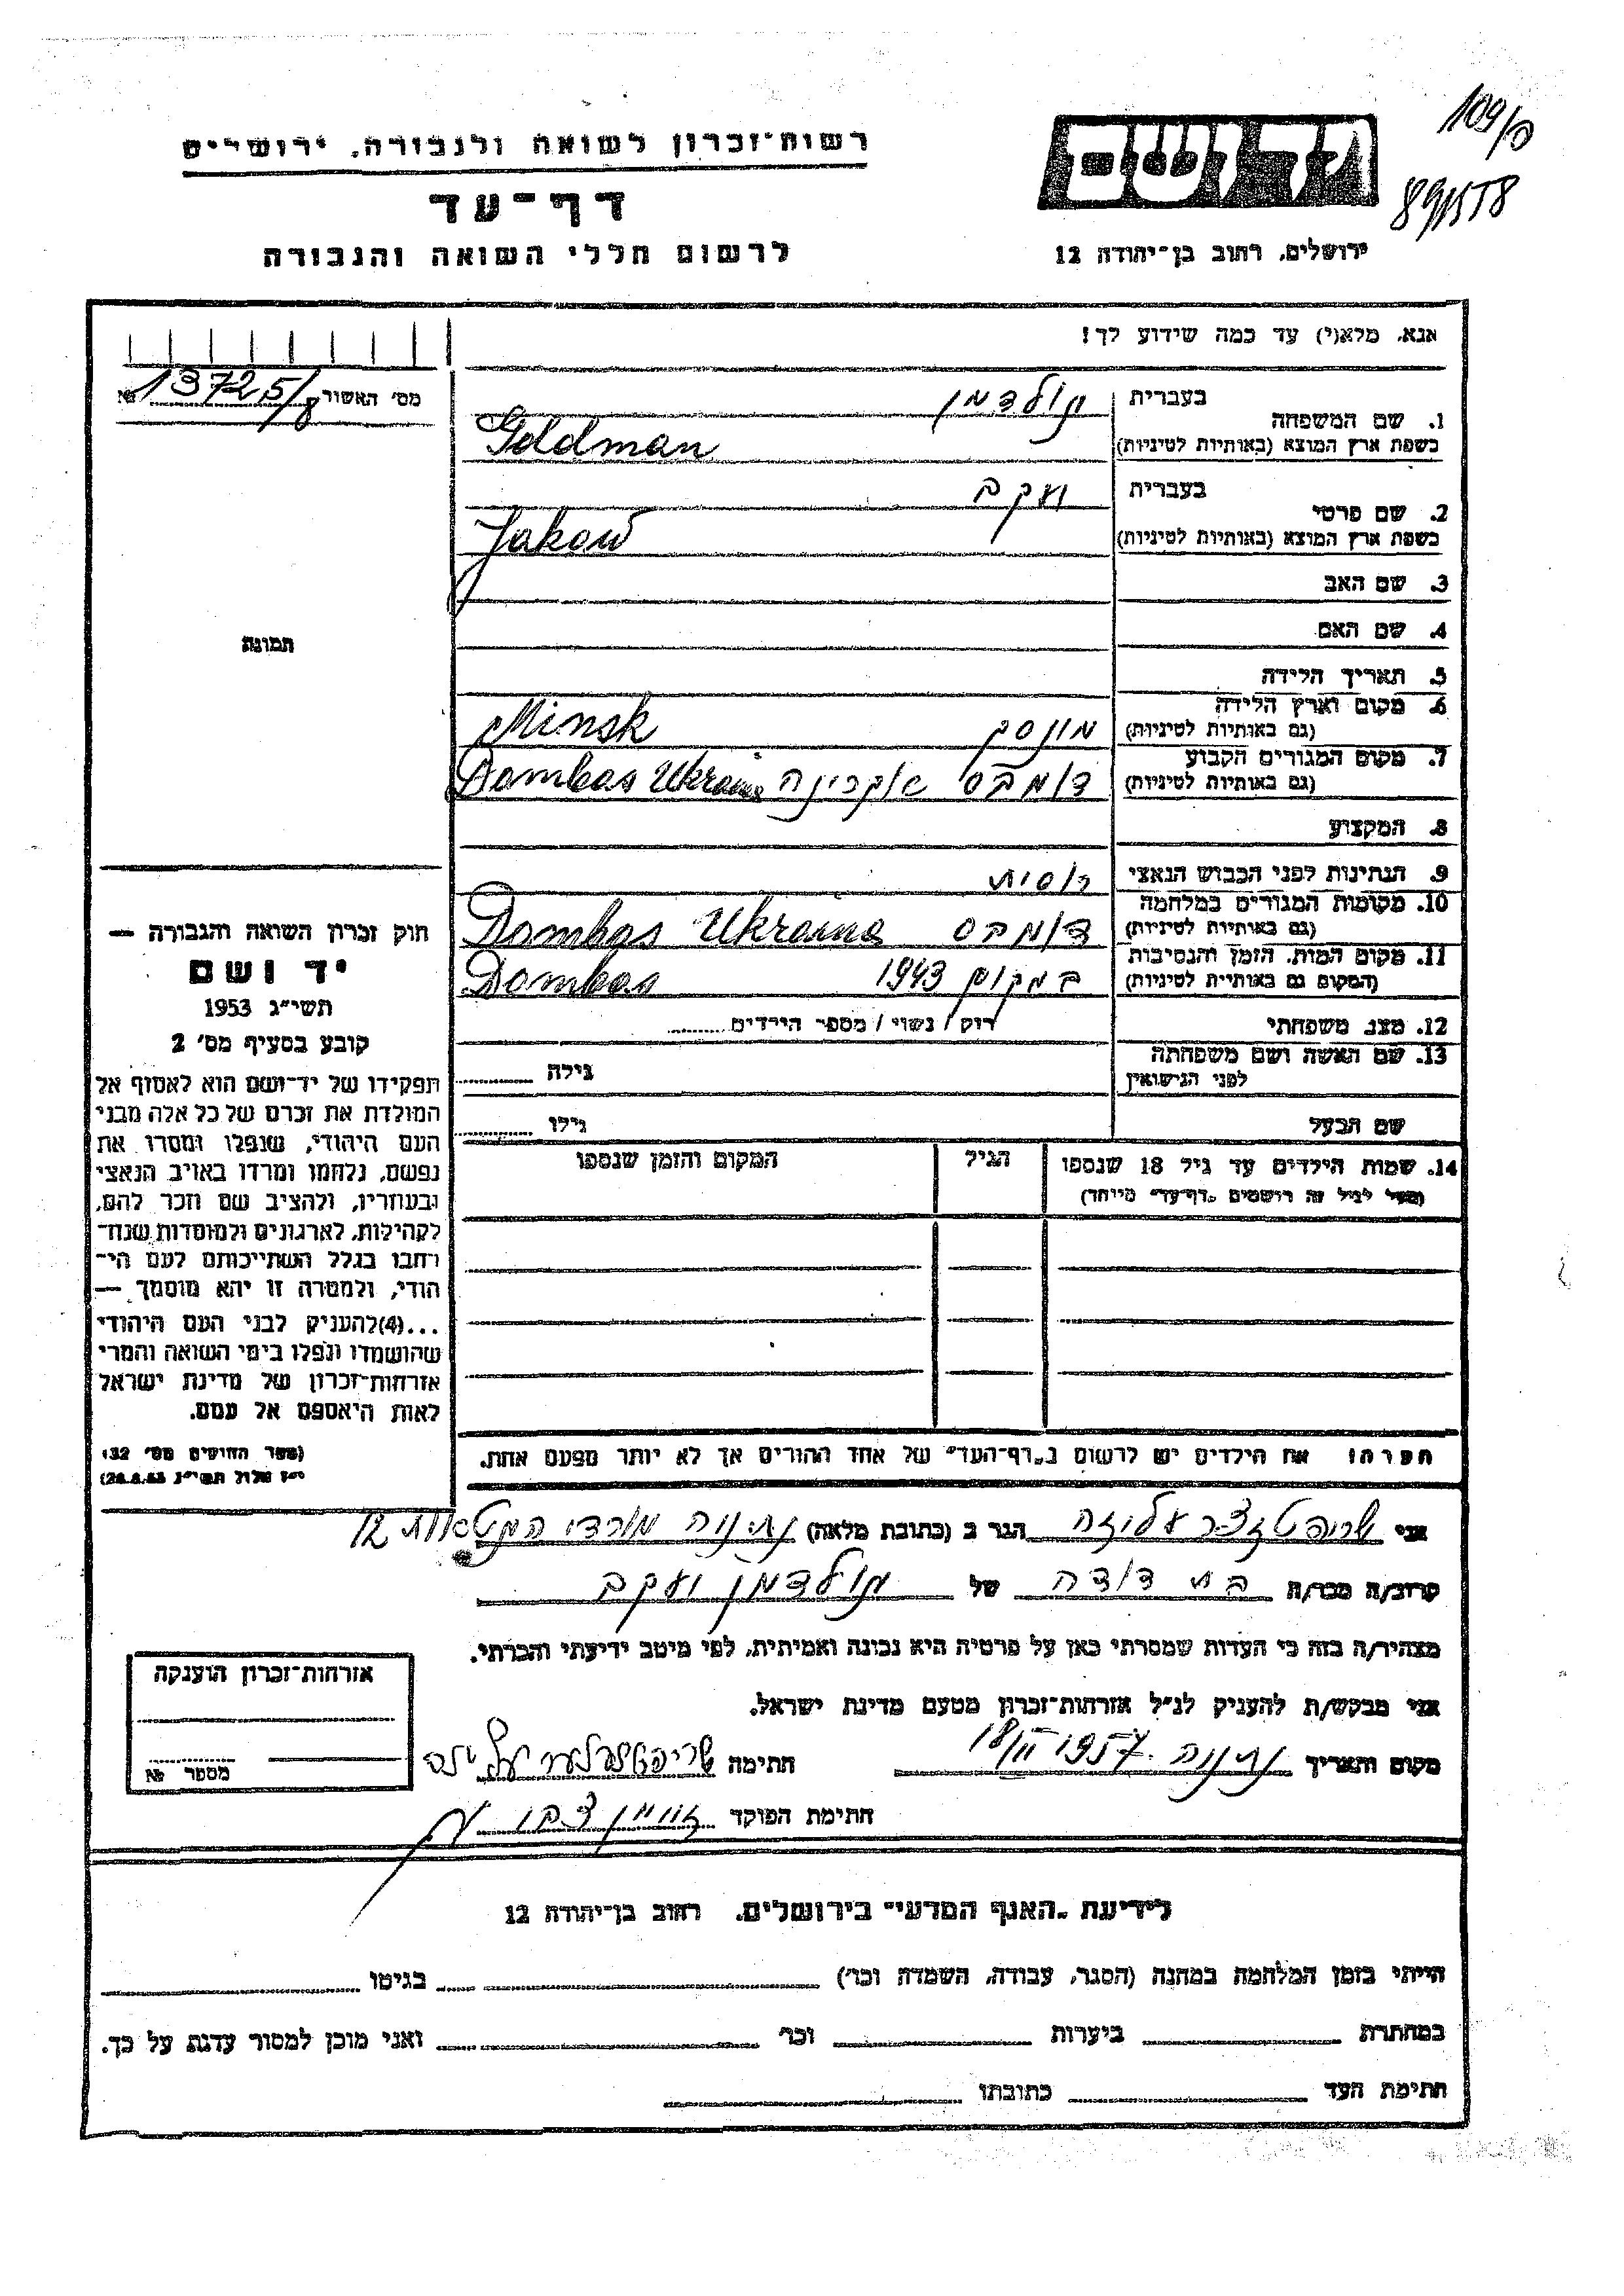 רשות־זכרון לשואה ולגבורה, ירושלים
דף־עד
לרשום חללי השואה והגבורה
ידושם
ירושלים, רחוב בן־יהודה 12
109/
אנא, מלא(י) עד כמה שידוע לך!
מס׳ האשור 13725/ №
1. שם המשפחה
בעברית גולדמן
בשפת ארץ המוצא (באותיות לטיניות) Goldman
2. שם פרטי
בעברית יעקב
בשפת ארץ המוצא (באותיות לטיניות) Jakow
3. שם האב
4. שם האם
5. תאריך הלידה
6. מקום וארץ הלידה (גם באותיות לטיניות) מינסק Minsk
7. מקום המגורים הקבוע (גם באותיות לטיניות) דומבס אוקרינה Dombas Ukraina
8. המקצוע
9. הנתינות לפני הכבוש הנאצי רוסית
10. מקומות המגורים במלחמה (גם באותיות לטיניות) דומבס Dombas Ukraina
11. מקום המות, הזמן והנסיבות (המקום גם באותיות לטיניות) במקום 1943 Dombas
12. מצב משפחתי רוק / נשוי / מספר הילדים
13. שם האשה ושם משפחתה לפני הנישואין גילה
שם הבעל גילו
14. שמות הילדים עד גיל 18 שנספו הגיל המקום והזמן שנספו
(מעל לגיל זה רושמים „דף־עד״ מיוחד)
תמונה
חוק זכרון השואה והגבורה —
יד ושם
תשי״ג 1953
קובע בסעיף מס׳ 2
תפקידו של יד־ושם הוא לאסוף אל
המולדת את זכרם של כל אלה מבני
העם היהודי, שנפלו ומסרו את
נפשם, נלחמו ומרדו באויב הנאצי
ובעוזריו, ולהציב שם וזכר להם,
לקהילות, לארגונים ולמוסדות שנח־
רבו בגלל השתייכותם לעם הי־
הודי, ולמטרה זו יהא מוסמך —
...(4)להעניק לבני העם היהודי
שהושמדו ונפלו בימי השואה והמרי
אזרחות־זכרון של מדינת ישראל
לאות היאספם אל עמם.
(ספר החוקים מס׳ 132
י״ז אלול תשי״ג 28.8.53)
הערה: את הילדים יש לרשום ב„דף־העד״ של אחד ההורים אך לא יותר מפעם אחת.
אני עליזה הגר ב (כתובת מלאה) נתניה מורדי הגטאות 12
קרוב/ה מכר/ה בת דודה של גולדמן יעקב
מצהיר/ה בזה כי העדות שמסרתי כאן על פרטיה היא נכונה ואמיתית, לפי מיטב ידיעתי והכרתי.
אני מבקש/ת להעניק לנ״ל אזרחות־זכרון מטעם מדינת ישראל.
מקום ותאריך נתניה 1957 חתימה
חתימת הפוקד
אזרחות־זכרון הוענקה
מספר №
לידיעת „האגף המדעי״ בירושלים, רחוב בן־יהודה 12
הייתי בזמן המלחמה במחנה (הסגר, עבודה, השמדה וכו׳) בגיטו
במחתרת ביערות וכו׳ ואני מוכן למסור עדות על כך.
חתימת העד כתובתו